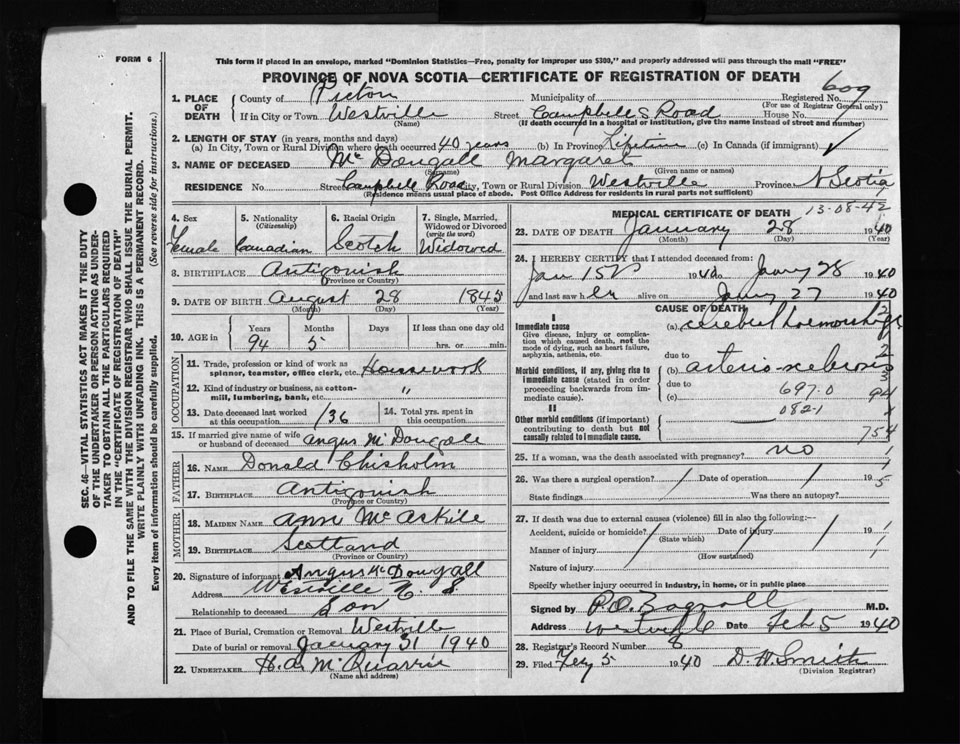 FORM 6
This form if placed in an envelope, marked "Dominion Statistics—Free, penalty for improper use $300," and properly addressed will pass through the mail "FREE"
PROVINCE OF NOVA SCOTIA—CERTIFICATE OF REGISTRATION OF DEATH
609
1. PLACE OF DEATH County of Pictou Municipality of Registered No.
(For use of Registrar General only)
If in City or Town Westville Street Campbell S Road House No.
(Name) (If death occurred in a hospital or institution, give the name instead of street and number)
2. LENGTH OF STAY (in years, months and days)
(a) In City, Town or Rural Division where death occurred 40 years (b) In Province Lifetime (c) In Canada (if immigrant)
3. NAME OF DECEASED McDougall Margaret
(Surname) (Given name or names)
RESIDENCE No. Street Campbell Road City, Town or Rural Division Westville Province N Scotia
(Residence means usual place of abode. Post Office Address for residents in rural parts not sufficient)
4. Sex Female
5. Nationality (Citizenship) Canadian
6. Racial Origin Scotch
7. Single, Married, Widowed or Divorced (write the word) Widowed
8. BIRTHPLACE Antigonish
(Province or Country)
9. DATE OF BIRTH August 28 1845
(Month) (Day) (Year)
10. AGE in Years Months Days If less than one day old
94 5 hrs. or min.
OCCUPATION
11. Trade, profession or kind of work as spinner, teamster, office clerk, etc. Housework
12. Kind of industry or business, as cotton-mill, lumbering, bank, etc. "
13. Date deceased last worked at this occupation 1936
14. Total yrs. spent in this occupation
15. If married give name of wife or husband of deceased Angus McDougall
FATHER
16. NAME Donald Chisholm
17. BIRTHPLACE Antigonish
(Province or Country)
MOTHER
18. MAIDEN NAME Ann McAskile
19. BIRTHPLACE Scotland
(Province or Country)
20. Signature of informant Angus McDougall
Address Westville N. S.
Relationship to deceased Son
21. Place of Burial, Cremation or Removal Westville
Date of burial or removal January 31 1940
22. UNDERTAKER H. A. McQuarrie
(Name and address)
MEDICAL CERTIFICATE OF DEATH 13-08-42
23. DATE OF DEATH January 28 1940
(Month) (Day) (Year)
24. I HEREBY CERTIFY that I attended deceased from:
Jan 15 1940 to Jany 28 1940
and last saw her alive on Jany 27 1940
CAUSE OF DEATH
I
Immediate cause (a) cerebral hemorrhage
Give disease, injury or complication which caused death, not the mode of dying, such as heart failure, asphyxia, asthenia, etc.
due to
Morbid conditions, if any, giving rise to immediate cause (stated in order proceeding backwards from immediate cause). (b) arterio-sclerosis
due to
(c) 697.0 94
082-1
II
Other morbid conditions (if important) contributing to death but not causally related to immediate cause.
754
25. If a woman, was the death associated with pregnancy? no
26. Was there a surgical operation? Date of 19
State findings Was there an autopsy?
27. If death was due to external causes (violence) fill in also the following:—
Accident, suicide or homicide? Date of injury 19
(State which)
Manner of injury
(How sustained)
Nature of injury
Specify whether injury occurred in industry, in home, or in public place
Signed by P.O. Bagnall M.D.
Address Westville Date Feb 5 1940
28. Registrar's Record Number 8
29. Filed Feby 5 1940 D. H. Smith
(Division Registrar)
SEC. 46—VITAL STATISTICS ACT MAKES IT THE DUTY
OF THE UNDERTAKER OR PERSON ACTING AS UNDER-
TAKER TO OBTAIN ALL THE PARTICULARS REQUIRED
IN THE "CERTIFICATE OF REGISTRATION OF DEATH"
AND TO FILE THE SAME WITH THE DIVISION REGISTRAR WHO SHALL ISSUE THE BURIAL PERMIT.
WRITE PLAINLY WITH UNFADING INK. THIS IS A PERMANENT RECORD.
Every item of information should be carefully supplied. (See reverse side for instructions.)